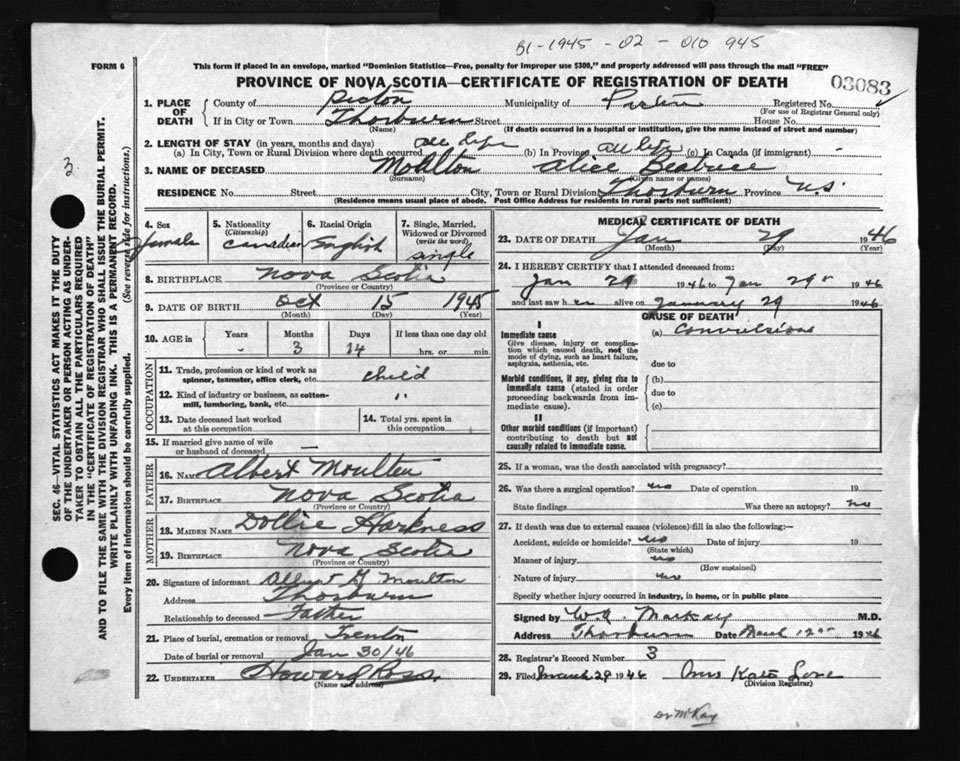 B1-1945-02-010 945
FORM 6
This form if placed in an envelope, marked "Dominion Statistics—Free, penalty for improper use $300," and properly addressed will pass through the mail "FREE"
PROVINCE OF NOVA SCOTIA—CERTIFICATE OF REGISTRATION OF DEATH
03083
1. PLACE OF DEATH
County of Pictou Municipality of Pictou Registered No.
(For use of Registrar General only)
If in City or Town Thorburn Street House No.
(Name) (If death occurred in a hospital or institution, give the name instead of street and number)
2. LENGTH OF STAY (in years, months and days)
(a) In City, Town or Rural Division where death occurred all life (b) In Province all life (c) In Canada (if immigrant) -
3. NAME OF DECEASED Moulton Alice Beatrice
(Surname) (Given name or names)
RESIDENCE No. Street City, Town or Rural Division Thorburn Province N.S.
(Residence means usual place of abode. Post Office Address for residents in rural parts not sufficient)
4. Sex female
5. Nationality (Citizenship) Canadian
6. Racial Origin English
7. Single, Married, Widowed or Divorced (write the word) single
8. BIRTHPLACE Nova Scotia
(Province or Country)
9. DATE OF BIRTH Oct 15 1945
(Month) (Day) (Year)
10. AGE in Years Months Days If less than one day old
- 3 14 hrs. or min.
OCCUPATION
11. Trade, profession or kind of work as spinner, teamster, office clerk, etc. child
12. Kind of industry or business, as cotton-mill, lumbering, bank, etc. "
13. Date deceased last worked at this occupation
14. Total yrs. spent in this occupation
15. If married give name of wife or husband of deceased —
FATHER
16. NAME Albert Moulton
17. BIRTHPLACE Nova Scotia
(Province or Country)
MOTHER
18. MAIDEN NAME Dollie Harkness
19. BIRTHPLACE Nova Scotia
(Province or Country)
20. Signature of informant Albert G Moulton
Address Thorburn
Relationship to deceased Father
21. Place of burial, cremation or removal Trenton
Date of burial or removal Jan 30/46
22. UNDERTAKER Howard Ross
(Name and address)
MEDICAL CERTIFICATE OF DEATH
23. DATE OF DEATH Jan 29 1946
(Month) (Day) (Year)
24. I HEREBY CERTIFY that I attended deceased from:
Jan 29 1946 to Jan 29 1946
and last saw her alive on January 29 1946
CAUSE OF DEATH
I
Immediate cause
Give disease, injury or complication which caused death, not the mode of dying, such as heart failure, asphyxia, asthenia, etc.
(a) Convulsions
due to
Morbid conditions, if any, giving rise to immediate cause (stated in order proceeding backwards from immediate cause).
(b)
due to
(c)
II
Other morbid conditions (if important) contributing to death but not causally related to immediate cause.
25. If a woman, was the death associated with pregnancy?
26. Was there a surgical operation? no Date of operation 19
State findings Was there an autopsy? no
27. If death was due to external causes (violence) fill in also the following:—
Accident, suicide or homicide? no Date of injury 19
(State which)
Manner of injury no
(How sustained)
Nature of injury no
Specify whether injury occurred in industry, in home, or in public place
Signed by W.A. MacKay M.D.
Address Thorburn Date March 12 1946
28. Registrar's Record Number 3
29. Filed March 29 1946 Mrs Kate Love
(Division Registrar)
Dr McKay
3
SEC. 46—VITAL STATISTICS ACT MAKES IT THE DUTY
OF THE UNDERTAKER OR PERSON ACTING AS UNDER-
TAKER TO OBTAIN ALL THE PARTICULARS REQUIRED
IN THE "CERTIFICATE OF REGISTRATION OF DEATH"
AND TO FILE THE SAME WITH THE DIVISION REGISTRAR WHO SHALL ISSUE THE BURIAL PERMIT.
WRITE PLAINLY WITH UNFADING INK. THIS IS A PERMANENT RECORD.
Every item of information should be carefully supplied. (See reverse side for instructions.)